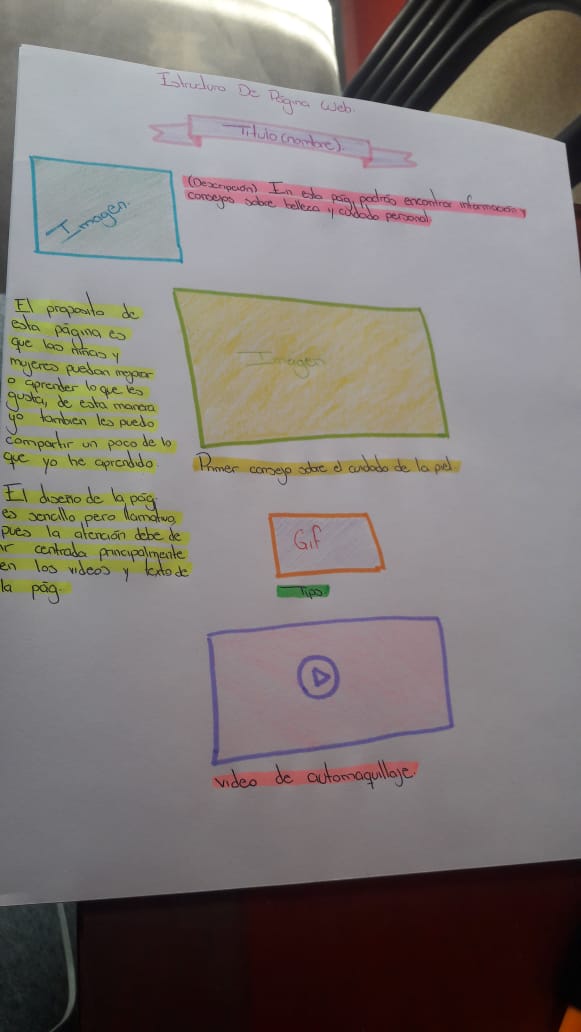 Estructura De Página Web.
Titulo (nombre).
Imagen.
(Descripción) In esta pág, podrás encontrar información y
consejos sobre belleza y cuidado personal.
El proposito de
esta página es
que las niñas y
mujeres puedan mejorar
o aprender lo que les
gusta, de esta manera
yo tambien les puedo
compartir un poco de lo
que yo he aprendido.
El diseño de la pág
es sencillo pero llamativo
pues la atención debe de
ir centrada principalmente
en los videos y texto de
la pág.
Imagen
Primer consejo sobre el cuidado de la piel.
Gif
Tips.
video de automaquillaje.